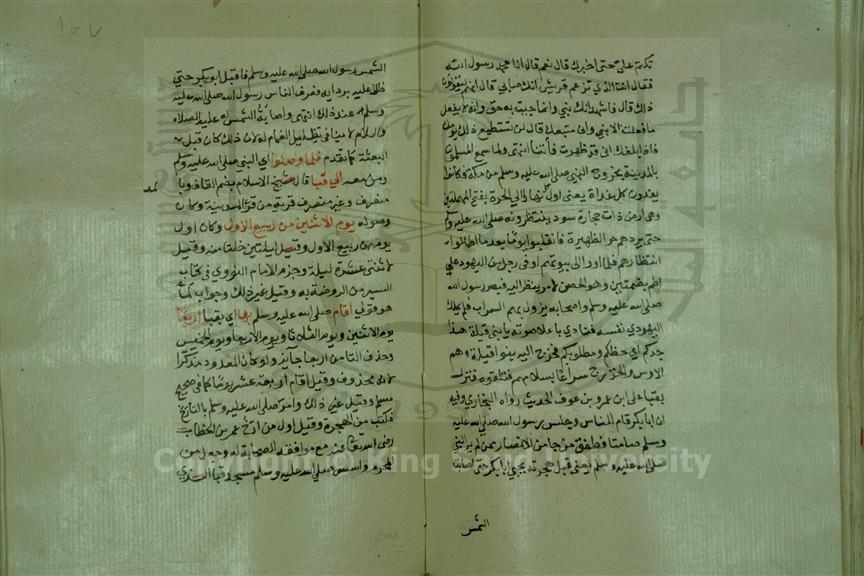 تكتم على حتى اخبرك قال نعم قال انا محمد رسول الله
فقال انت الذي تزعم قريش انك صابي قال انهم ليقولون
ذلك قال فاشهد انك نبي وانما جيت به حق وانه لا يفعل
ما فعلت الا نبي وانى متبعك قال لن تستطيع ذلك يومك
فاذا بلغك انى قد ظهرت فأتنا انتهى ولما سمع المسلمون
بالمدينة بخروج النبي صلى الله عليه وسلم من مكة فكانوا
يغدون كل غداة يعنى اول نهار الى الحرة بفتح المهملتين
وهى ارض ذات حجارة سود ينتظرونه صلى الله عليه وسلم
حتى يردهم حر الظهيرة فانقلبوا يوما بعد ما اطالوا
انتظارهم فلما اووا الى بيوتهم أوفى رجل من اليهود على
اطم بضمتين وهو الحصن لامر ينظر اليه فبصر رسول الله
صلى الله عليه وسلم واصحابه يزول بهم السراب فلم يملك
اليهودي نفسه فنادى باعلا صوته يا بنى قيلة هذا
جدكم اى حظكم ومطلوبكم فخرج اليه بنو اقيلة وهم
الاوس والخزرج سراعا بسلاحهم فتلقوه فنزل
بقباء على ابن عمرو بن عوف الحديث رواه البخاري وفيه
ان ابا بكر قام للناس وجلس رسول الله صلى الله عليه
وسلم صامتا فطفق من جا من الانصار ممن لم ير النبي
صلى الله عليه وسلم يعنى قبل هجرته يجي ابا بكر حتى اصابت
الشمس
١٥٧
الشمس رسول الله صلى الله عليه وسلم فاقبل ابو بكر حتى
ظلل عليه بردايه فعرف الناس رسول الله صلى الله عليه
وسلم عند ذلك انتهى واصابة الشمس له عليه الصلاه
والسلام لا ينافى تظليل الغمام له لان ذلك كان قبل
البعثة كما تقدم فلما وصلوا اى النبي صلى الله عليه وسلم
ومن معه الى قبا قال شيخ الاسلام بضم القاف وبا
لمد
منصرف وغير منصرف قرية من قرى المدينة وكان
وصوله يوم الاثنين من ربيع الاول وكان اول
يوم من ربيع الاول وقيل لليلتين خلتا منه وقيل
لاثنتى عشرة ليلة وجزم الامام النووي في كتاب
السير من الروضة به وقيل غير ذلك وجواب لما
هو قولى اقام صلى الله عليه وسلم بها اى بقبا اربعا
يوم الاثنين ويوم الثلاثا ويوم الاربعا ويوم الخميس
وحذف التا من اربعا جايز ولو كان المعدود مذكرا
لانه محذوف وقيل اقام اربعة عشر يوما كما في صحيح
مسلم وقيل غير ذلك وامر صلى الله عليه وسلم بالتاريخ
فكتب من الهجرة وقيل اول من ارخ عمر بن الخطاب
رضى الله تعالى عنه مع موافقة الصحابة له وجعل من
المحرم واسس صلى الله عليه وسلم مسجد قبا الذي
Copyright © King Saud University
1957